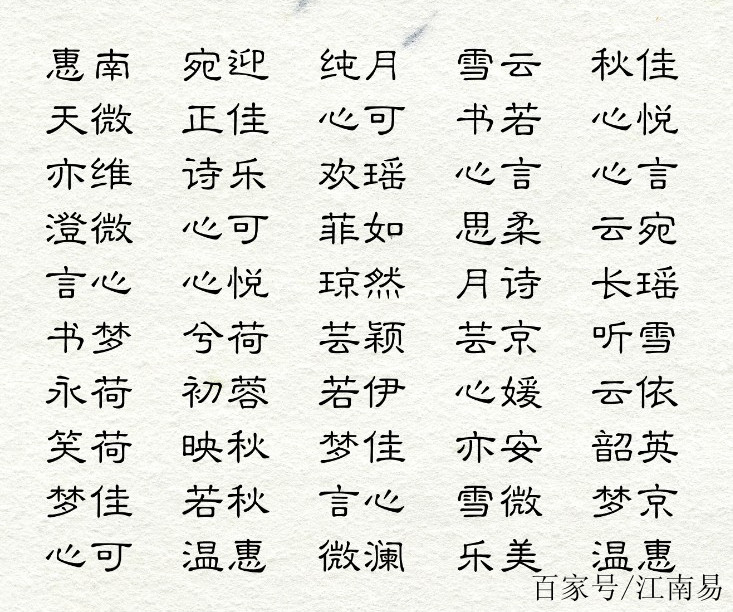 惠南 宛迎 纯月 雪云 秋佳
天微 正佳 心可 书若 心悦
亦维 诗乐 欢瑶 心言 心言
澄微 心可 菲如 思柔 云宛
言心 心悦 琼然 月诗 长瑶
书梦 兮荷 芸颖 芸京 听雪
永荷 初蓉 若伊 心媛 云依
笑荷 映秋 梦佳 亦安 韶英
梦佳 若秋 言心 雪微 梦京
心可 温惠 微澜 乐美 温惠
百家号/江南易